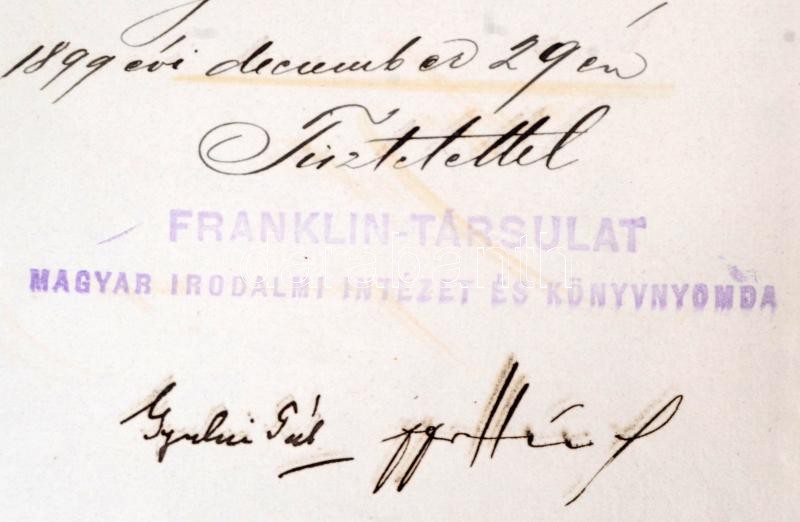 1899 évi december 29én
Tisztelettel
FRANKLIN-TÁRSULAT
MAGYAR IRODALMI INTÉZET ÉS KÖNYVNYOMDA
Gyulai Pál